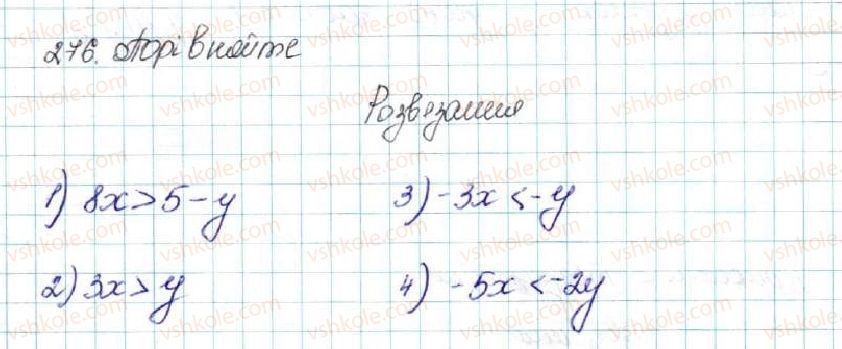 276. Порівняйте
Розв'язання
1) 8x > 5 - y
3) -3x < -y
2) 3x > y
4) -5x < -2y
vshkole.com